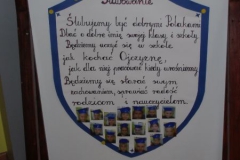 Ślubowanie
Ślubujemy być dobrymi Polakami
Dbać o dobre imię swojej klasy i szkoły.
Będziemy uczyć się w szkole,
jak kochać Ojczyznę,
jak dla niej pracować kiedy urośniemy.
Będziemy się starać swym
zachowaniem, sprawiać radość
rodzicom i nauczycielom.